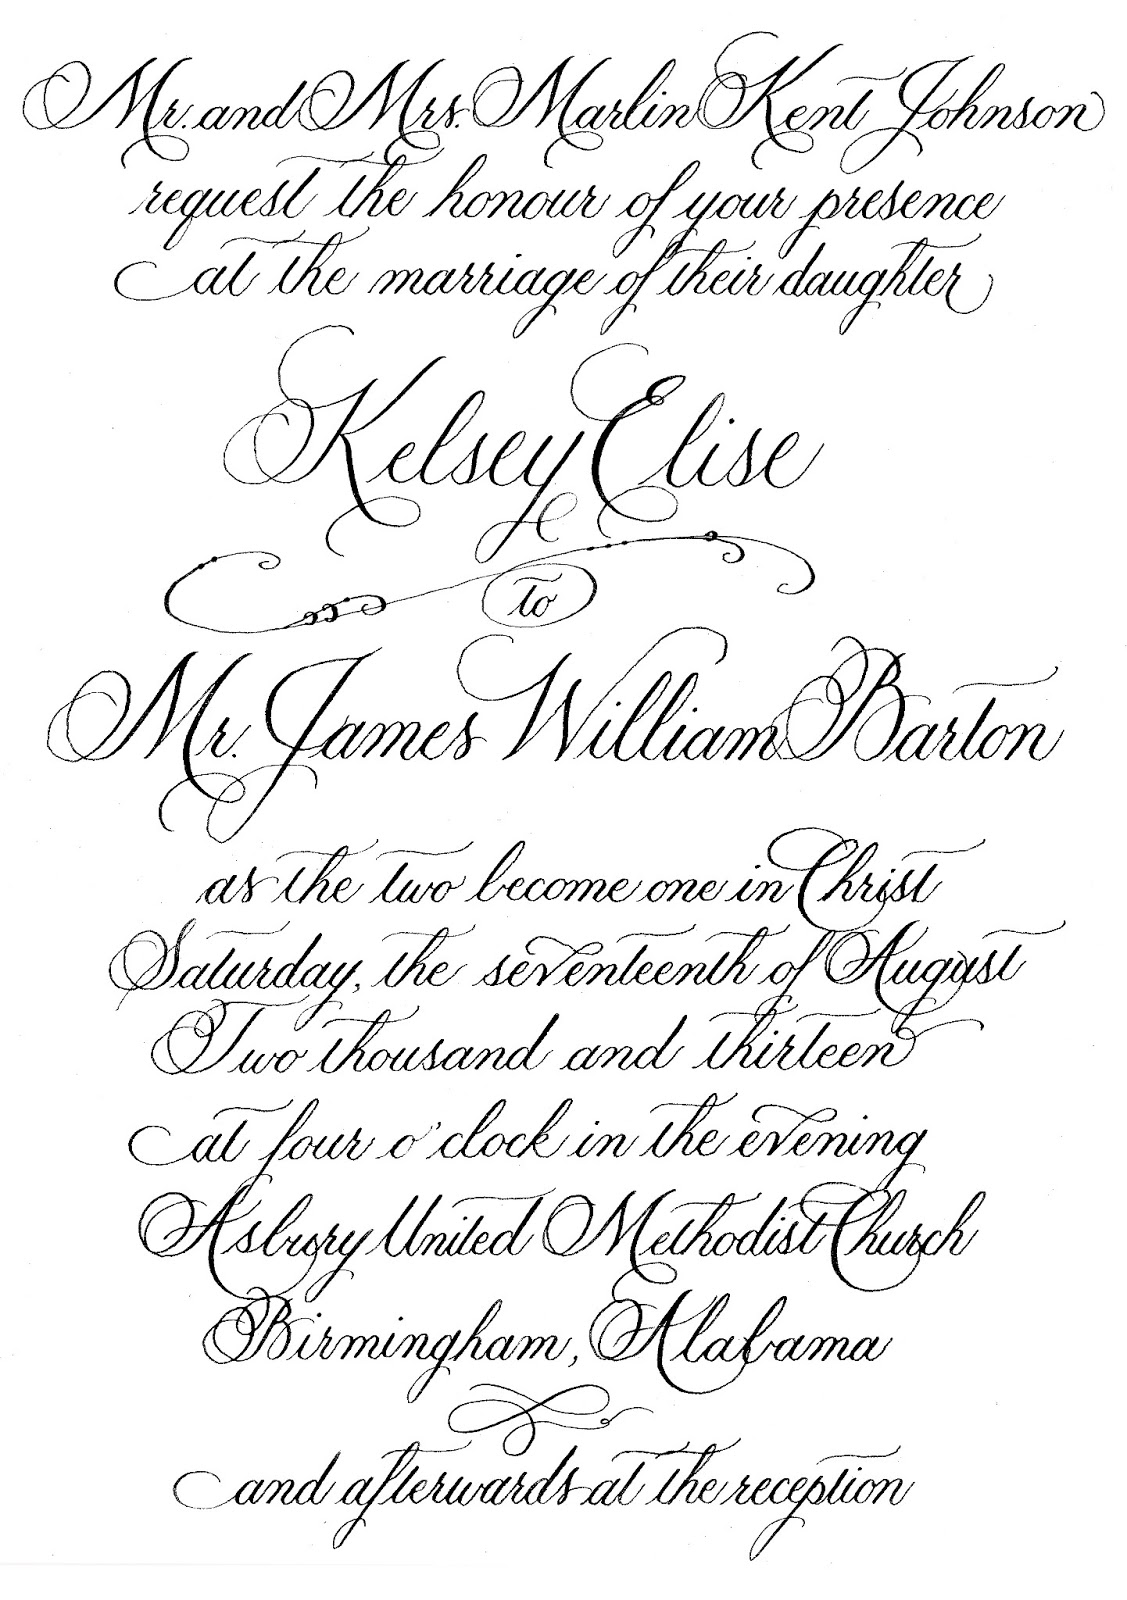 Mr. and Mrs. Marlin Kent Johnson
request the honour of your presence
at the marriage of their daughter
Kelsey Elise
to
Mr. James William Barton
as the two become one in Christ
Saturday, the seventeenth of August
Two thousand and thirteen
at four o'clock in the evening
Asbury United Methodist Church
Birmingham, Alabama
and afterwards at the reception